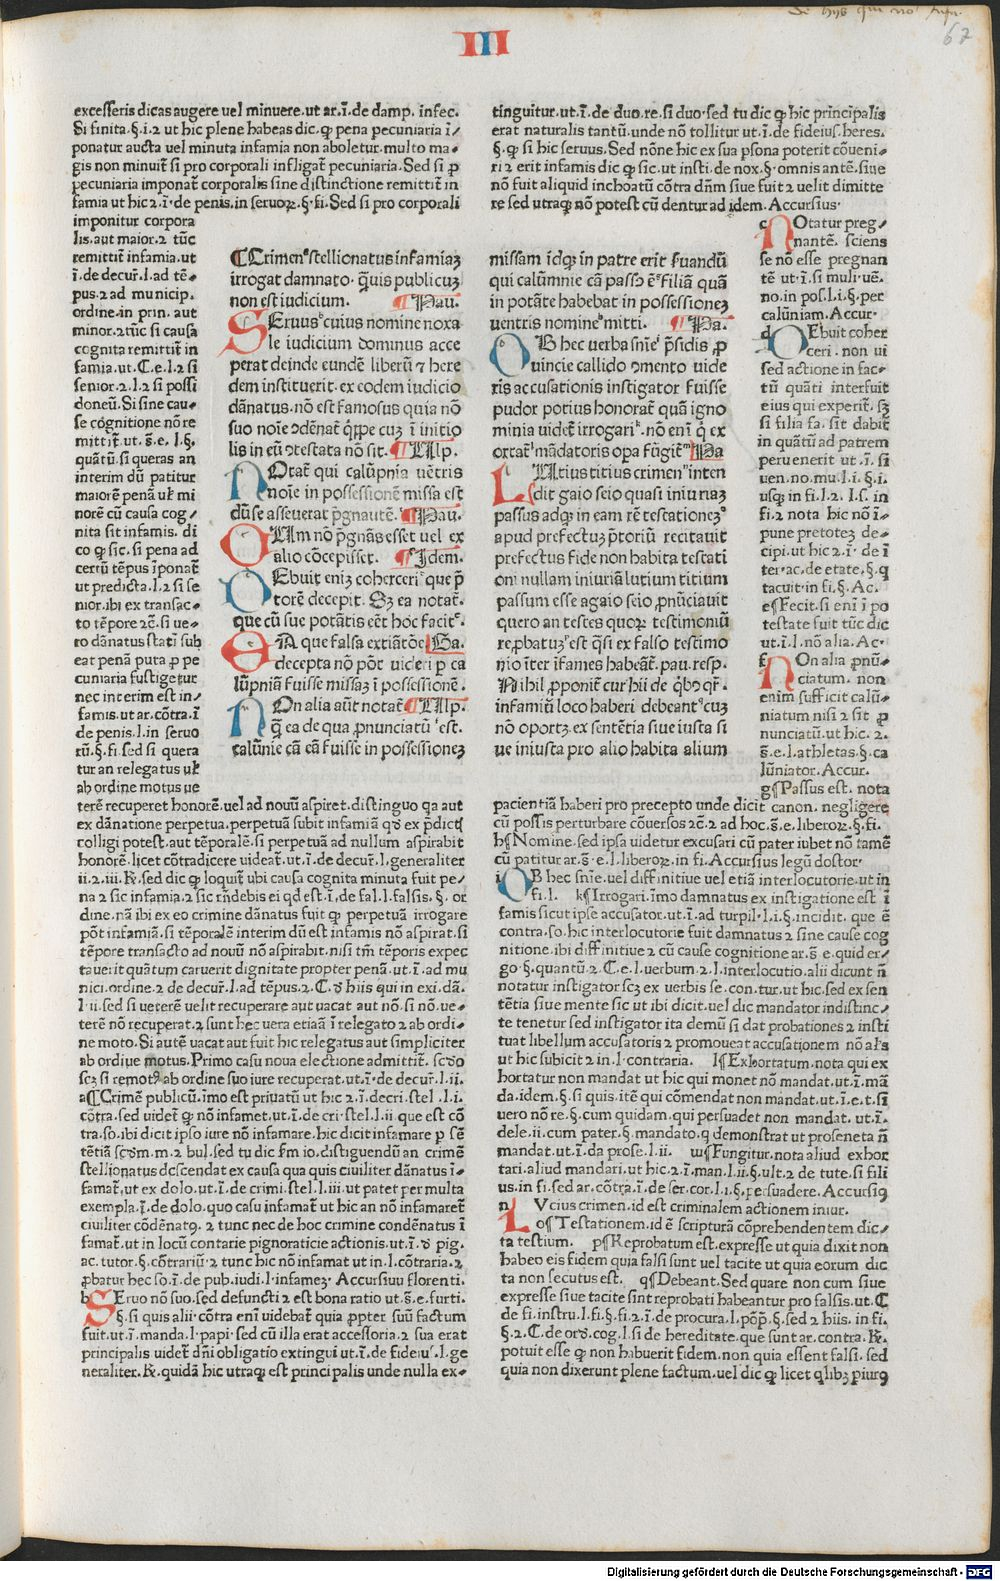 de hijs qui no
67
III
excesseris dicas augere uel minuere. ut ar. ī. de damp. infec.
Si finita. §. i. ⁊ ut hic plene habeas dic. ꝙ pena pecuniaria ī/
ponatur aucta uel minuta infamia non aboletur. multo ma-
gis non minuit̄ si pro corporali infligat̄ pecuniaria. Sed si ꝑ
pecuniaria imponat̄ corporalis sine distinctione remittit̄ in
famia ut hic ⁊. ī. de penis. in seruoꝝ. §. fi. Sed si pro corporali
imponitur corpora
lis. aut maior. ⁊ tūc
remittit̄ infamia. ut
ī. de decur. l. ad tē-
pus. ⁊ ad municip.
ordine. in prin. aut
minor. ⁊ tūc si causa
cognita remittit̄ in
famia. ut. C. e. l. ⁊ si
senior. ⁊. l. ⁊ si possi
doneū. Si sine cau-
se cognitione nō re
mittit̄. ut. s̄. e. l. §.
quātū. si queras an
interim dū patitur
maiorē penā uł mi
norē cū causa cog-
nita sit infamis. di
co ꝙ sic. si pena ad
certū tēpus īponat̄
ut predicta. l. ⁊ si se
nior. ibi ex transac-
to tēpore ⁊c̄. si ue-
ro dānatus statī sub
eat penā puta ꝑ pe
cuniaria fustigetur
nec interim est in/
famis. ut ar. cōtra. ī
de penis. l. in seruo
rū. §. fi. sed si quera
tur an relegatus uł
ab ordine motus ue
terē recuperet honorē. uel ad nouū aspiret. distinguo q̄a aut
ex dānatione perpetua. perpetuā subit infamiā qd̄ ex p̄dictis
colligi potest. aut tēporalē. si perpetuā ad nullum aspirabit
honorē. licet cōtradicere uideat̄. ut. ī. de decur. l. generaliter
ii. ⁊. iii. R̄. sed dic ꝙ loquit̄ ubi causa cognita minuta fuit pe/
na ⁊ sic infamia. ⁊ sic rn̄debis ei qd̄ est. ī. de fal. l. falsis. §. or
dine. nā ibi ex eo crimine dānatus fuit ꝙ perpetuā irrogare
pōt infamiā. si tēporalē interim dū est infamis nō aspirat. si
tēpore transacto ad nouū nō aspirabit. nisi tm̄ tēporis expec
tauerit quātum caruerit dignitate propter penā. ut. ī. ad mu
nici. ordine. ⁊ de decur. l. ad tēpus. ⁊. C. d̄ hiis qui in exi. dā.
l. ii. sed si ueterē uelit recuperare aut uacat aut nō. si nō. ue-
terē nō recuperat. ⁊ sunt hec uera etiaā ī relegato ⁊ ab ordi-
ne moto. Si autē uacat aut fuit hic relegatus aut simpliciter
ab ordine motus. Primo casu noua electione admittit̄. scd̄o
scꝫ si remotꝰ ab ordine suo iure recuperat. ut. ī. de decur. l. ii.
a¶ Crimē publicū. imo est priuatū ut hic ⁊. ī. decri. stel. l. i.
cōtra. sed uidet̄ ꝙ nō infamet. ut. ī. de cri. stel. l. ii que est cō
tra. so. ibi dicit ipso iure nō infamare. hic dicit infamare ꝑ sē
tētiā scd̄m. m. ⁊ bul. sed tu dic ſm io. distiguendū an crimē
stellionatus descendat ex causa qua quis ciuiliter dānatus ī-
famat̄. ut ex dolo. ut. ī. de crimi. stel. l. iii. ut patet per multa
exempla. ī. de dolo. quo casu infamat̄ ut hic an nō infamaret̄
ciuiliter cōdēnatꝰ. ⁊ tunc nec de hoc crimine condēnatus ī
famat̄. ut in locū contarie pignoraticie actionis. ut. ī. d̄ pig.
ac. tutor. §. cōtrariū. ⁊ tunc hic nō infamat ut in. l. cōtraria. ⁊
ꝓbatur hec so. ī. de pub. iudi. l. infameꝫ. Accursiuu florenti.
b SEruo nō suo. sed defuncti ⁊ est bona ratio ut. s̄. e. furti.
§. si quis alii. cōtra enī uidebat̄ quia ꝓpter suū factum
fuit. ut. ī. manda. l. papi. sed cū illa erat accessoria. ⁊ sua erat
principalis uidet̄ dn̄i obligatio extingui ut. ī. de fideius. l. ge
neraliter. R̄. quidā hic utraqꝫ est principalis unde nulla ex-
¶ Crimenᵃ stellionatus infamiaꝫ
irrogat damnato. q̄uis publicuꝫ
non est iudicium. ¶ Pau.
SEruusᵇ cuius nomine noxa
le iudicium dominus acce
perat deinde eundē liberū ⁊ here
dem instituerit. ex eodem iudicio
dānatus. nō est famosus quia nō
suo noīe ↄdēnat̄ q̄ppe cuꝫ ī initio
lis in eū ↄtestata nō sit. ¶ Ulp.
NOtat̄ qui calūpnia uētris
noīe in possessionē missa est
dū se asseuerat p̄gnātē. ¶ Pau.
CUm nō p̄gnās esset uel ex
alio cōcepisset. ¶ Idem.
DEbuit eniꝫ coherceri que p̄
torē decepit. Sꝫ ea notat̄.
que cū sue potātis eēt hoc facit.
EA que falsa extiātōe Ga.
decepta nō pōt uideri ꝑ ca
lūpniā fuisse missaꝫ ī possessionē.
NOn alia aūt notat̄ ¶ Ulp.
q̄ ea de qua ꝓnunciatū est.
calūnie cā eā fuisse in possessioneꝫ
tinguitur. ut. ī. de duo. re. si duo. sed tu dic ꝙ hic principalis
erat naturalis tantū. unde nō tollitur ut. ī. de fideius. heres.
§. ꝙ si hic seruus. Sed nōne hic ex sua psona poterit cōueni-
ri ⁊ erit infamis dic ꝙ sic. ut insti. de nox. §. omnis antē. siue
nō fuit aliquid inchoatū cōtra dn̄m siue fuit ⁊ uelit dimitte
re sed utraqꝫ nō potest cū dentur ad idem. Accursius.
missam idqꝫ in patre erit ẜuandū
qui calūmnie cā passꝰ ē filiā quā
in potāte habebat in possessioneꝫ
uentris nomine mitti. ¶ Pa.
OB hec uerba sniē p̄sidis ꝓ
uincie callido ↄmento uide
ris accusationis instigator fuisse
pudor potius honorat̄ quā igno
minia uidet̄ irrogari. nō enī q̄ ex
ortat̄ mādatoris opa fūgit̄ Pa
LUtius titius crimen inten
dit gaio seio quasi iniuriaꝫ
passus adqꝫ in eam rē testationeꝫ
apud prefectuꝫ p̄toriū recitauit
prefectus fide non habita testati
oni nullam iniuriā lutium titium
passum esse agaio seio ꝓnūciauit
quero an testes quoꝝ testimoniū
reꝓbatuꝫ est q̄si ex falso testimo
nio īter īfames habeāt̄. pau. resp.
Nihil ꝓponit̄ cur hii de q̄bꝰ qr̄.
infamiū loco haberi debeant cuꝫ
nō oportꝫ ex sentētia siue iusta si
ue iniusta pro alio habita alium
c NOtatur preg/
nantē. sciens
se nō esse pregnan
tē ut. ī. si muli. uē.
no. in pos. l. i. §. per
calūniam. Accur.
d DEbuit coher
ceri. non ui
sed actione in fac-
tū quāti interfuit
eius qui experit̄. sꝫ
si filia fa. sit dabit̄
in quātū ad patrem
peruenerit ut. ī. si
uen. no. mu. l. i. §. i.
usqꝫ in fi. l. ⁊. l. s. in
fi. ⁊ nota hic nō ī-
pune pretotes de-
cipi. ut hic ⁊. ī. de ī
ter. ac. de etate. §. q̄
tacuit in fi. §. Ac.
e¶ Fecit. si enī ī po
testate fuit tūc dic
ut. ī. l. nō alia. Ac.
f NOn alia ꝓnū/
ciatum. non
enim sufficit calū-
niatum nisi ⁊ sit ꝓ
nunciatū. ut hic. ⁊.
s̄. e. l. athletas. §. ca
lūniator. Accur.
g¶ Passus est. nota
pacientiā haberi pro precepto unde dicit canon. negligere
cū possis perturbare cōuersos ⁊c̄. ⁊ ad hoc. s̄. e. liberoꝝ. §. fi.
h¶ Nomine. sed ipsa uidetur excusari cū pater iubet nō tamē
cū patitur ar. s̄. e. l. liberoꝝ. in fi. Accursius legū doctor.
i OB hec sniē. uel diffinitiue uel etiā interlocutorie. ut in
fi. l. k¶ Irrogari. īmo damnatus ex instigatione est ī
famis sicut ipse accusator. ut. ī. ad turpil. l. i. §. incidit. que ē
contra. so. hic interlocutorie fuit damnatus ⁊ sine cause cog
nitione. ibi diffinitiue ⁊ cū cause cognitione ar. s̄ e. quid er/
go. §. quantū. ⁊. C. e. l. uerbum. ⁊. l. interlocutio. alii dicunt n̄
notatur instigator scꝫ ex uerbis se. con. tur. ut hic. sed ex sen
tētia siue mente sic ut ibi dicit. uel dic mandator indistinc-
te tenetur sed instigator ita demū si dat probationes ⁊ insti
tuat libellum accusatoris ⁊ promoueat accusationem nō al̄s
ut hic subicit ⁊ in. l. contraria. l¶ Exhortatum. nota qui ex
hortatur non mandat ut hic qui monet nō mandat. ut. ī. mā
da. idem. §. si quis. itē qui cōmendat non mandat. ut. ī. e. t. si
uero nō re. §. cum quidam. qui persuadet non mandat. ut. ī.
dele. ii. cum pater. §. mandato. q demonstrat ut proseneta n̄
mandat. ut. ī. da prose. l. ii. m¶ Fungitur. nota aliud exhor
tari. aliud mandari. ut hic. ⁊. ī. man. l. ii. §. ult. ⁊ de tute. si fili
us. in fi. sed ar. cōtra. ī. de ser. cor. l. i. §. persuadere. Accursiꝰ
n LUcius crimen. id est criminalem actionem iniur.
o¶ Testationem. id ē scripturā cōprehendentem dic/
ta testium. p¶ Reprobatum est. expresse ut quia dixit non
habeo eis fidem quia falsi sunt uel tacite ut quia eorum dic
ta non secutus est. q¶ Debeant. Sed quare non cum siue
expresse siue tacite sint reprobati habeantur pro falsis. ut. C
de fi. instru. l. fi. §. fi. ⁊. ī. de procura. l. pōp̄. §. sed ⁊ hiis. in fi.
§. ⁊. C. de ord. cog. l. si de hereditate. que sunt ar. contra. R̄.
potuit esse ꝙ non habuerit fidem. non quia essent falsi. sed
quia non dixerunt plene factum. uel dic ꝙ licet qlibꝫ piurꝰ
Digitalisierung gefördert durch die Deutsche Forschungsgemeinschaft - DFG